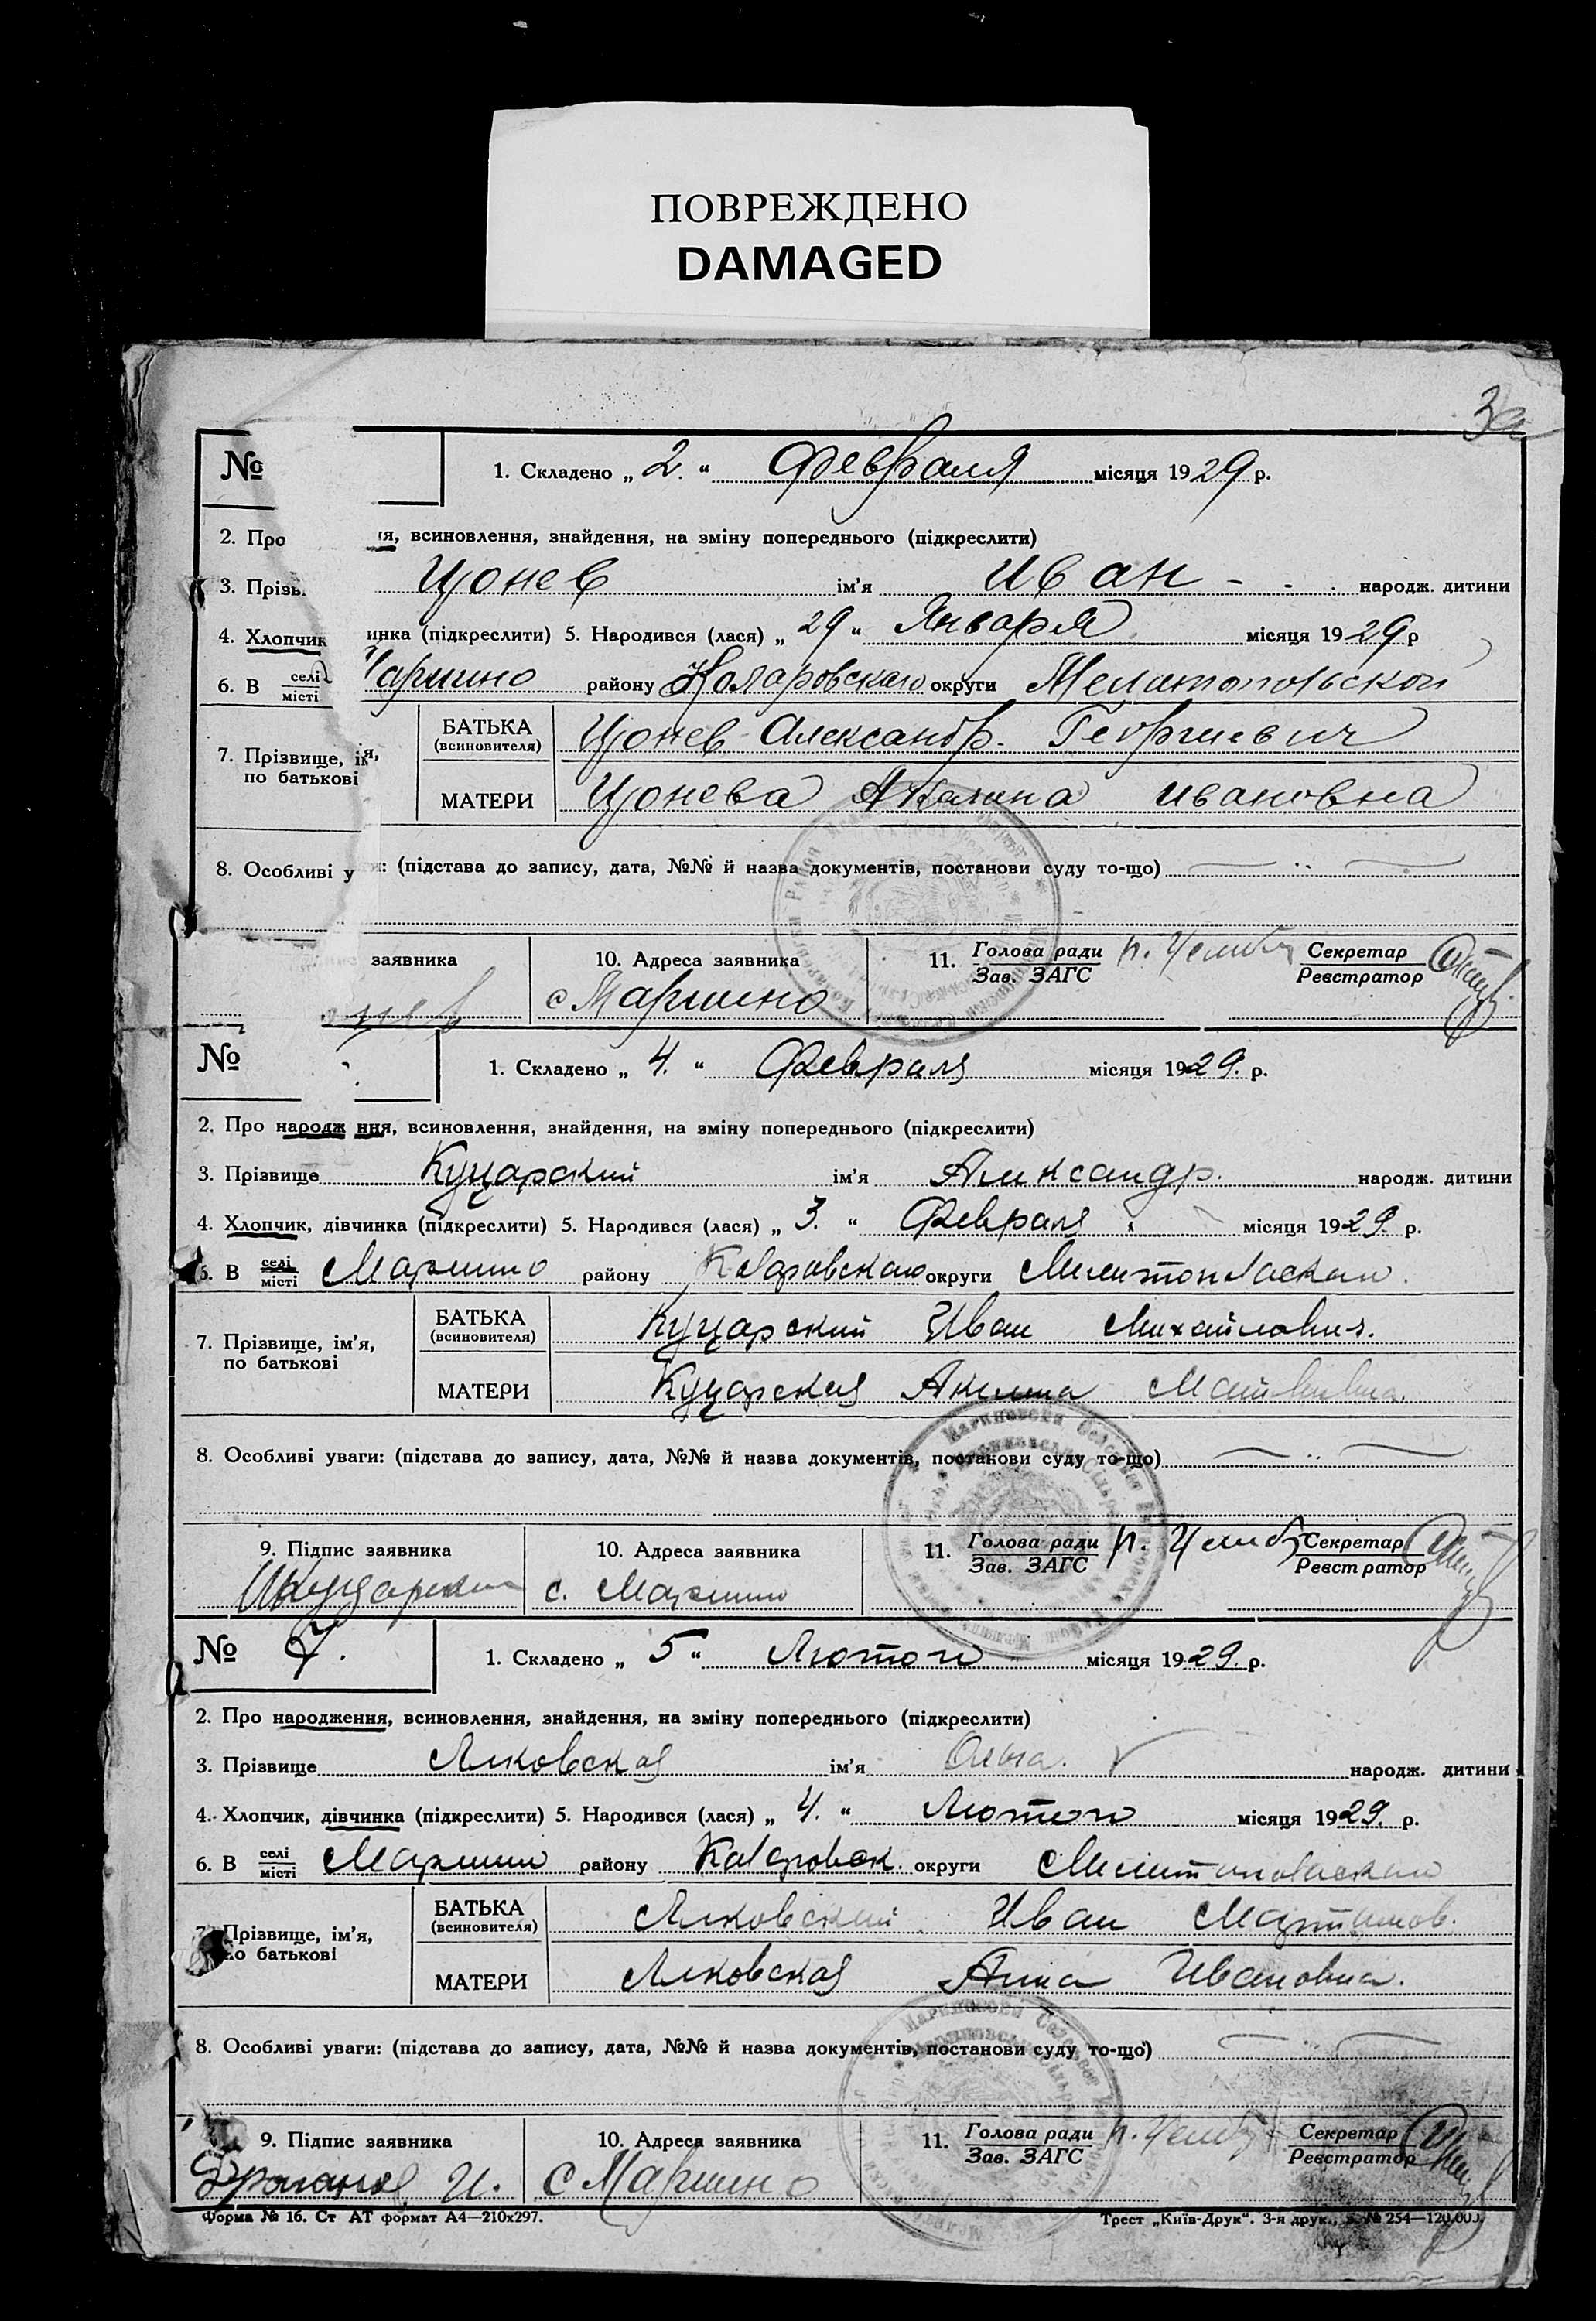 ПОВРЕЖДЕНО
DAMAGED
3а
№ 1. Складено „ 2. “ Февраля місяця 1929 р.
2. Про ія, всиновлення, знайдення, на зміну попереднього (підкреслити)
3. Прізв Цонев ім’я Иван народж. дитини
4. Хлопчик инка (підкреслити) 5. Народився (лася) „ 29 “ Января місяця 1929 р
6. В селі місті Марино району Коларовского округи Мелитопольской
7. Прізвище, ім’я, по батькові
БАТЬКА (всиновителя) Цонев Александр Георгиевич
МАТЕРИ Цонева Акалина Ивановна
8. Особливі у и: (підстава до запису, дата, №№ й назва документів, постанови суду то-що)
заявника 10. Адреса заявника 11. Голова ради Зав. ЗАГС Секретар Реєстратор
с Марино
№ 1. Складено „ 4. “ Февраля місяця 1929. р.
2. Про народж ння, всиновлення, знайдення, на зміну попереднього (підкреслити)
3. Прізвище Куцарский ім’я Александр. народж. дитини
4. Хлопчик, дівчинка (підкреслити) 5. Народився (лася) „ 3. “ Февраля місяця 1929. р.
6. В селі місті Марино району Коларовского округи
7. Прізвище, ім’я, по батькові
БАТЬКА (всиновителя) Куцарский Иван Михайлович.
МАТЕРИ Куцарская Акулина
8. Особливі уваги: (підстава до запису, дата, №№ й назва документів, постанови суду то-що)
9. Підпис заявника 10. Адреса заявника 11. Голова ради Зав. ЗАГС Секретар Реєстратор
с. Марино
№ 7. 1. Складено „ 5 “ Лютого місяця 1929. р.
2. Про народження, всиновлення, знайдення, на зміну попереднього (підкреслити)
3. Прізвище Ялковская ім’я Ольга. народж. дитини
4. Хлопчик, дівчинка (підкреслити) 5. Народився (лася) „ 4. “ Лютого місяця 1929. р.
6. В селі місті Марино району Коларовск. округи
7. Прізвище, ім’я, по батькові
БАТЬКА (всиновителя) Ялковский Иван Мартинов.
МАТЕРИ Ялковская Анна Ивановна.
8. Особливі уваги: (підстава до запису, дата, №№ й назва документів, постанови суду то-що)
9. Підпис заявника 10. Адреса заявника 11. Голова ради Зав. ЗАГС Секретар Реєстратор
Драганов И. с Марино
Форма № 16. Ст АТ формат А4—210x297. Трест „Київ-Друк“. 3-я друк., з. № 254—120.000.